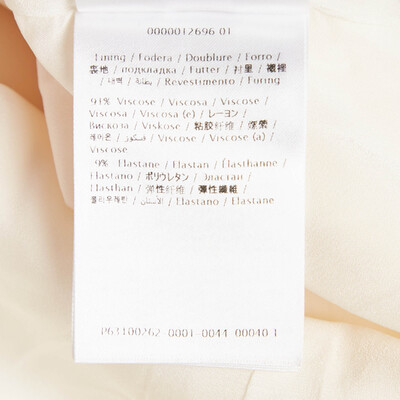 0000012696 01
Lining / Fodera / Doublure / Forro /
裝地 / подкладка / Futter / 衬里 / 襯裡
/ 안감 / بطانة / Revestimento / Furing
91% Viscose / Viscosa / Viscose /
Viscosa / Viscosa (e) / レーヨン /
Вискоза / Viskose / 粘胶纤维 / 嫘縈
레이온 / فسكوز / Viscose / Viscose (a) /
Viscose
9% Elastane / Elastan / Élasthanne /
Elastano / ポリウレタン / Эластан /
Elasthan / 弹性纤维 / 彈性纖維 /
폴리우레탄 / الأستان / Elastano / Elastane
P63100262-0001-0044-00040 1